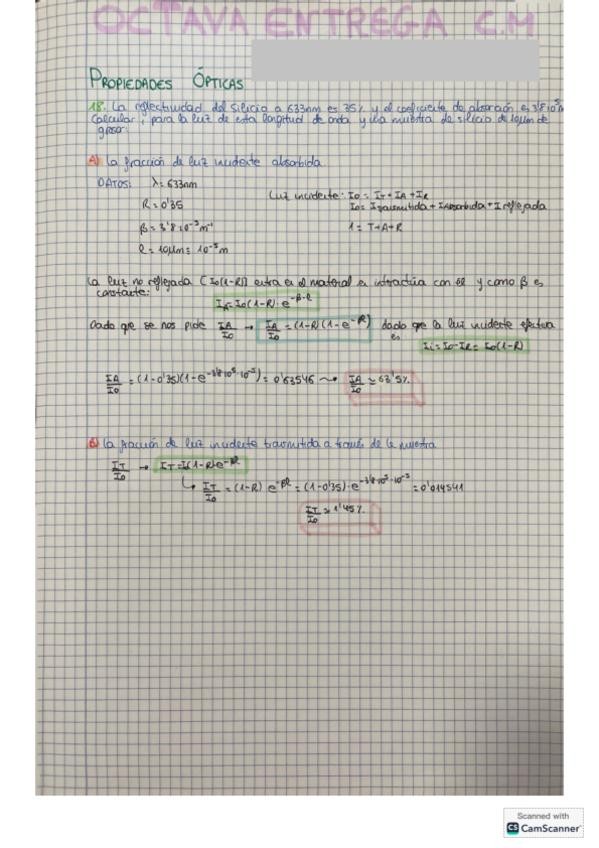 OCTAVA ENTREGA C.M
PROPIEDADES ÓPTICAS
18. La reflectividad del silicio a 633nm es 35% y el coeficiente de absorción es 3'8·10⁵m
Calcular, para la luz de esta longitud de onda y una muestra de silicio de 10μm de
grosor:
A) La fracción de luz incidente absorbida
DATOS: λ=633nm
Luz incidente: I₀ = IT + IA + IR
R=0'35
I₀= Itransmitida + IAbsorbida + I reflejada
1 = T+A+R
l=10μm= 10⁻⁵m
La luz no reflejada (I₀(1-R)) entra en el material e interactúa con él y como β es
constante:
IA=I₀(1-R)·e^-β·l
Dado que se nos pide IA/I₀ → IA/I₀ = (1-R)(1-e^-βl) dado que la luz incidente efectiva
es
Ii=I₀-IR= I₀(1-R)
IA/I₀ = (1-0'35)(1-e^-3'8·10⁵·10⁻⁵)= 0'63546 ⇝ IA/I₀ ≃ 63'5%
B) La fracción de luz incidente trasmitida a través de la muestra
IT/I₀ → IT=I₀(1-R)e^-βl
↳ IT/I₀ = (1-R) e^-βl = (1-0'35)·e^-3'8·10⁵·10⁻⁵ = 0'014541
IT/I₀ ≃ 1'45%
Scanned with
CS CamScanner